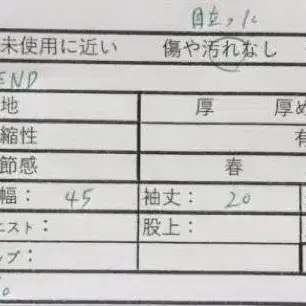 目立った
未使用に近い 傷や汚れなし
END
地 厚 厚め
縮性 有
節感 春
幅： 45 袖丈： 20
エスト： 股上：
ップ：